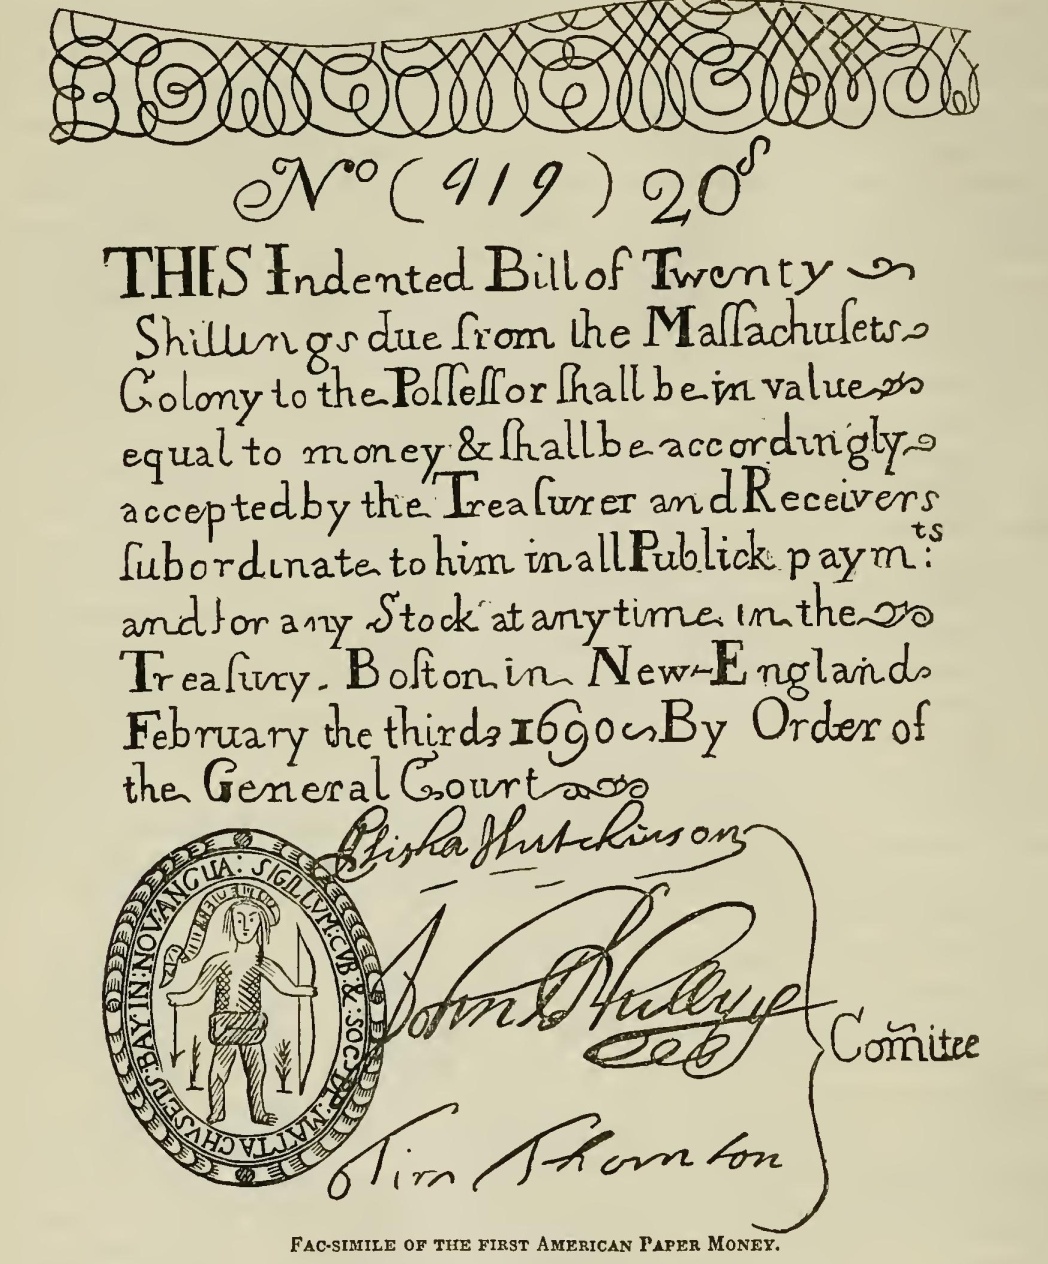 Nº (919) 20ˢ
THIS Indented Bill of Twenty
Shillings due from the Maſſachuſets
Colony to the Poſſeſſor ſhall be in value
equal to money & ſhall be accordingly
accepted by the Treaſurer and Receivers
ſubordinate to him in all Publick paymᵗˢ:
and for any Stock at any time in the
Treaſury. Boſton in New-England
February the third 1690 By Order of
the General Court
Elisha Hutchinson
John
Tim Thornton
Com̃itee
SIGILLVM: CVB: & : SOC: DE: MATTACHVSETS: BAY: IN: NOV: ANGLIA:
FAC-SIMILE OF THE FIRST AMERICAN PAPER MONEY.